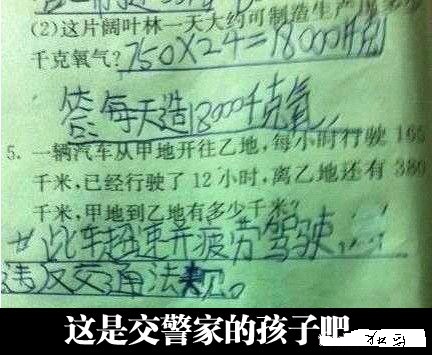 (2)这片阔叶林一天大约可制造生产
千克氧气?750×24=18000(千克)
答:每天造18000千克氧
5. 一辆汽车从甲地开往乙地,每小时行驶165
千米,已经行驶了12小时,离乙地还有380
千米,甲地到乙地有多少千米?
此车超速并疲劳驾驶,
违反交通法规。
这是交警家的孩子吧